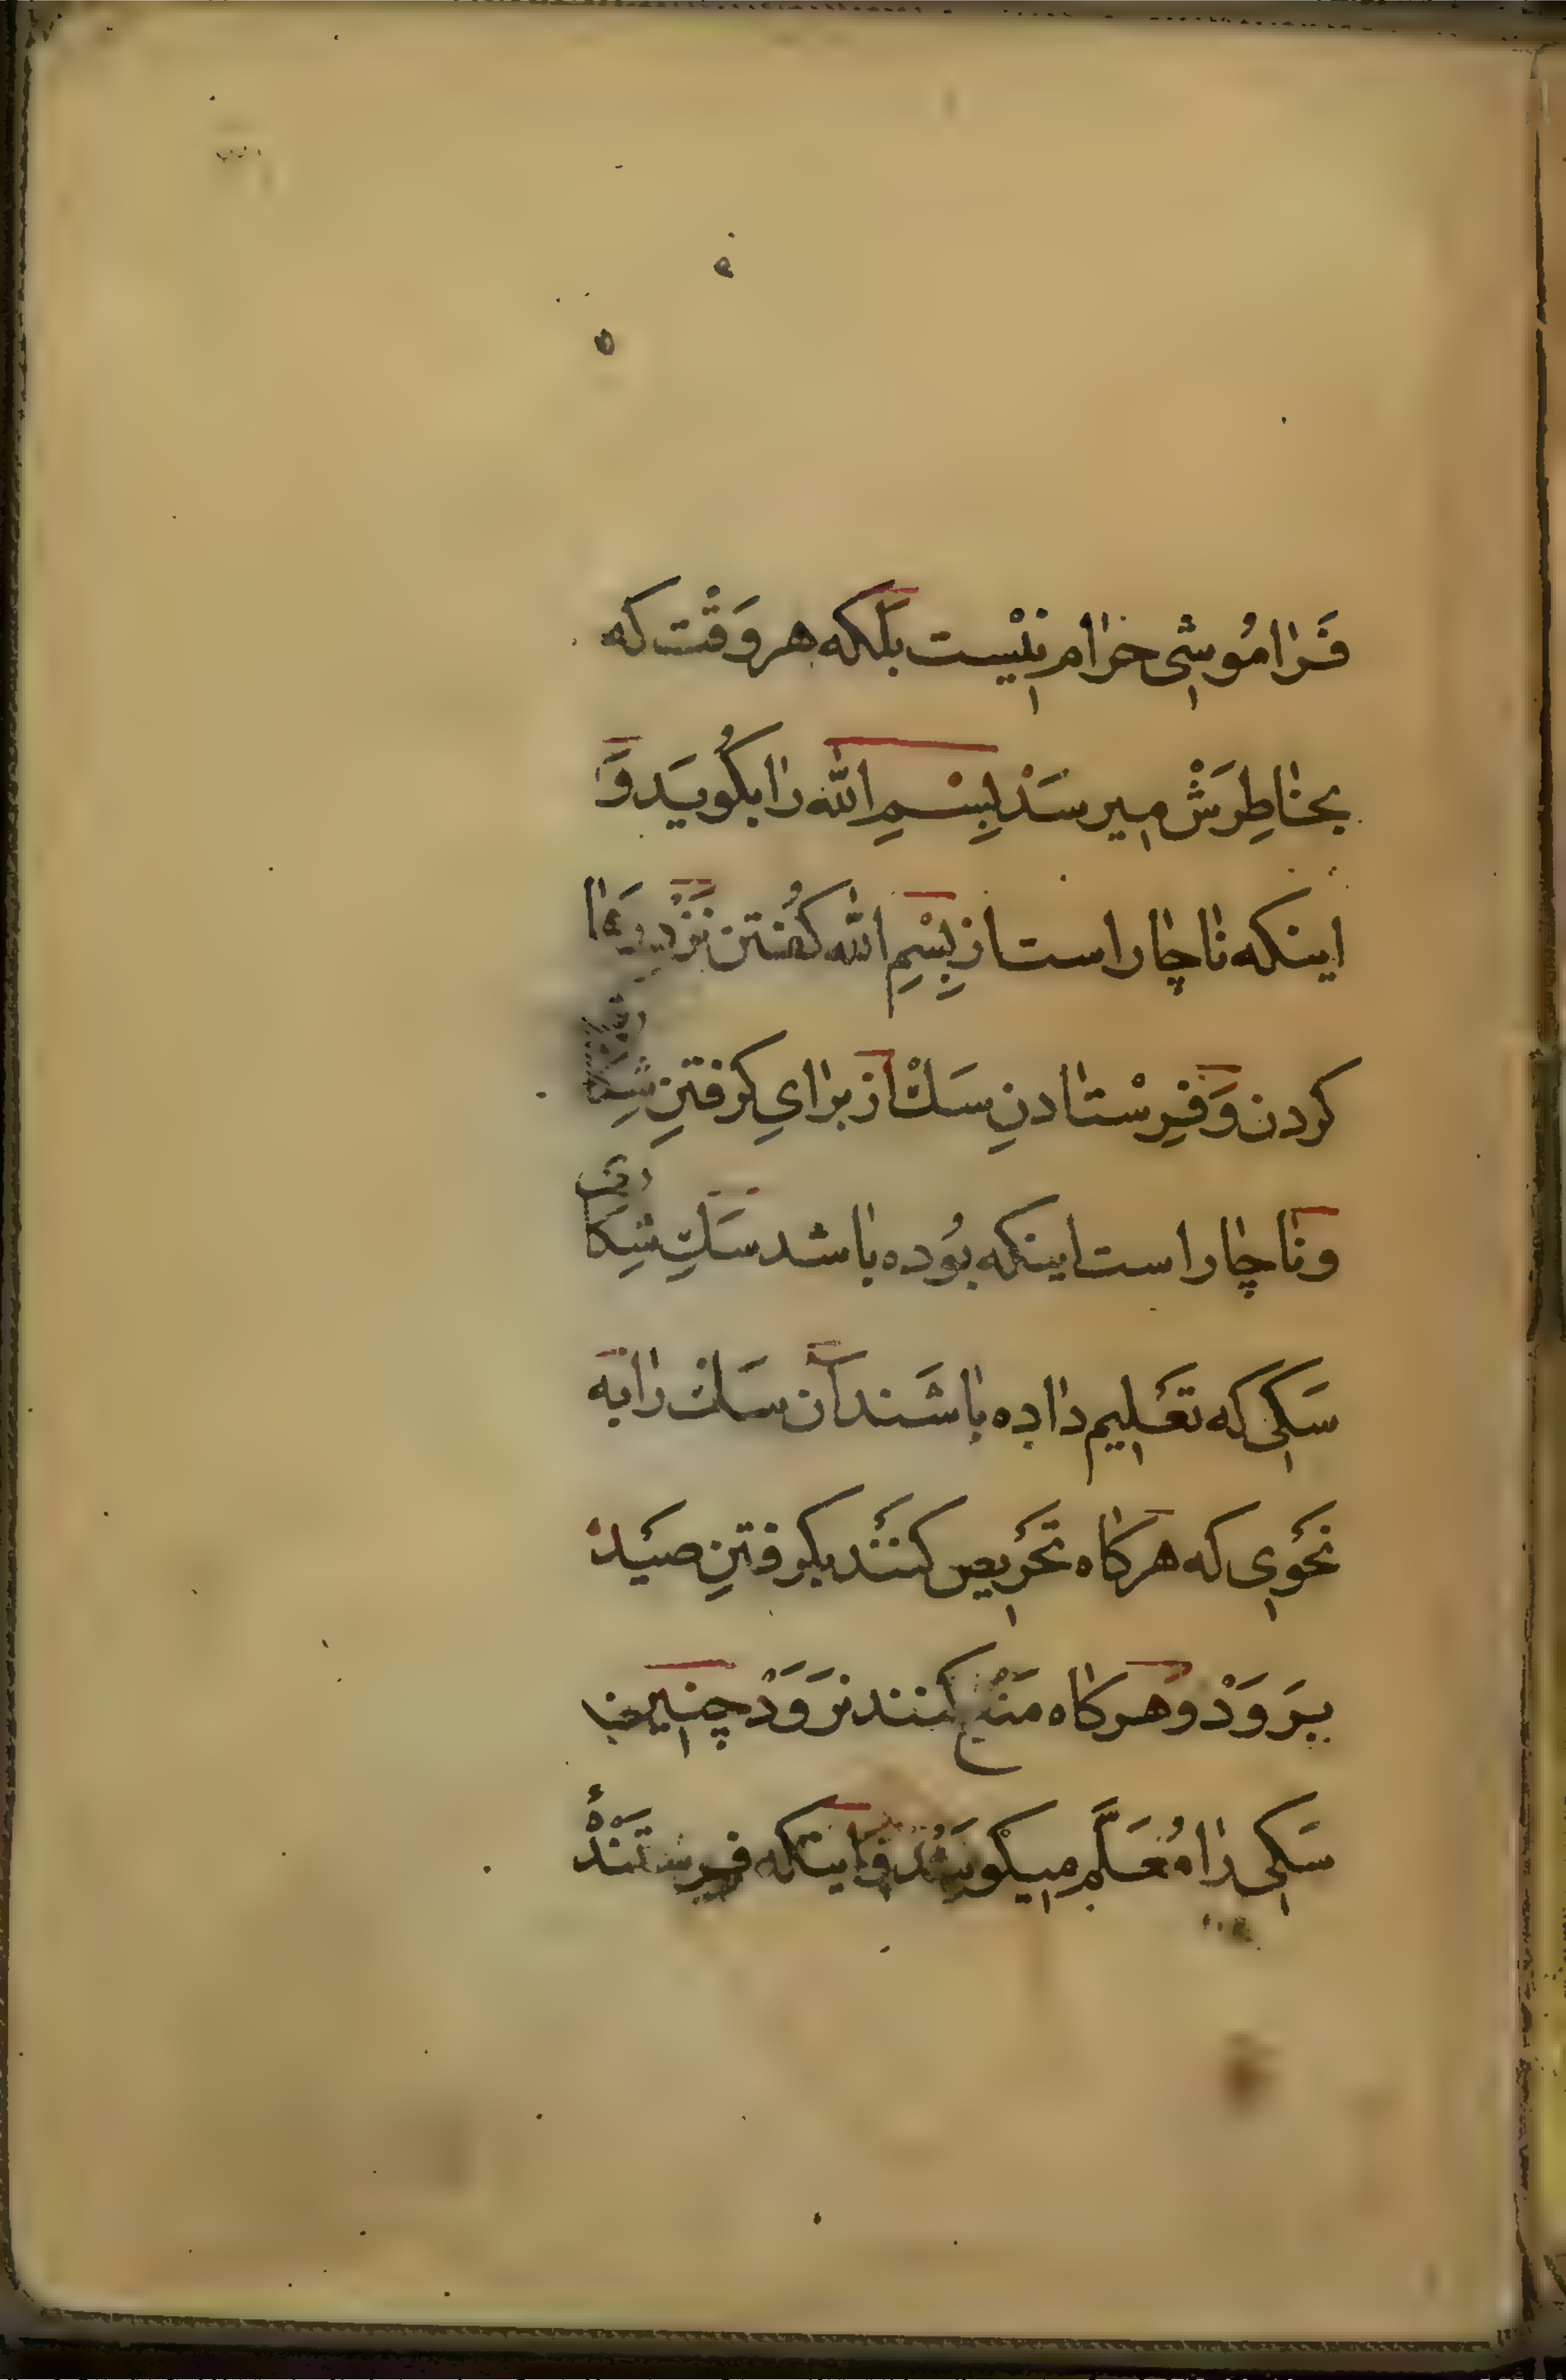 فَرٰامُوشی حرٰام نیٖست بلکه هر وَقْت که
بخٰاطِرَشْ میرسَدْ بِسْمِ اللّٰه رٰا بکُویَد وَ
اینکه نٰاچٰار است از بِسْمِ اللّٰه کفُتن نَزْدِ رَهٰا
کردن وَ فِرِسْتٰادنِ سَكْ از برٰایِ کرفتنِ شِکٰا
و نٰاچٰار است اینکه بُوده بٰاشد سَكِ شِکٰا
سَکی که تَعْلیم دٰاده بٰاشَند آن سَك رٰا به
نَحْوی که هرکٰاه تَحْریص کنَنْد بکرفتنِ صَیْدْ
برَوَدْ وَ هرکٰاه مَنْع کنند نرَوَدْ چنین
سَکی رٰا مُعَلَّم میکویَنْد وَ اینکه فِرِسْتَنْدْ